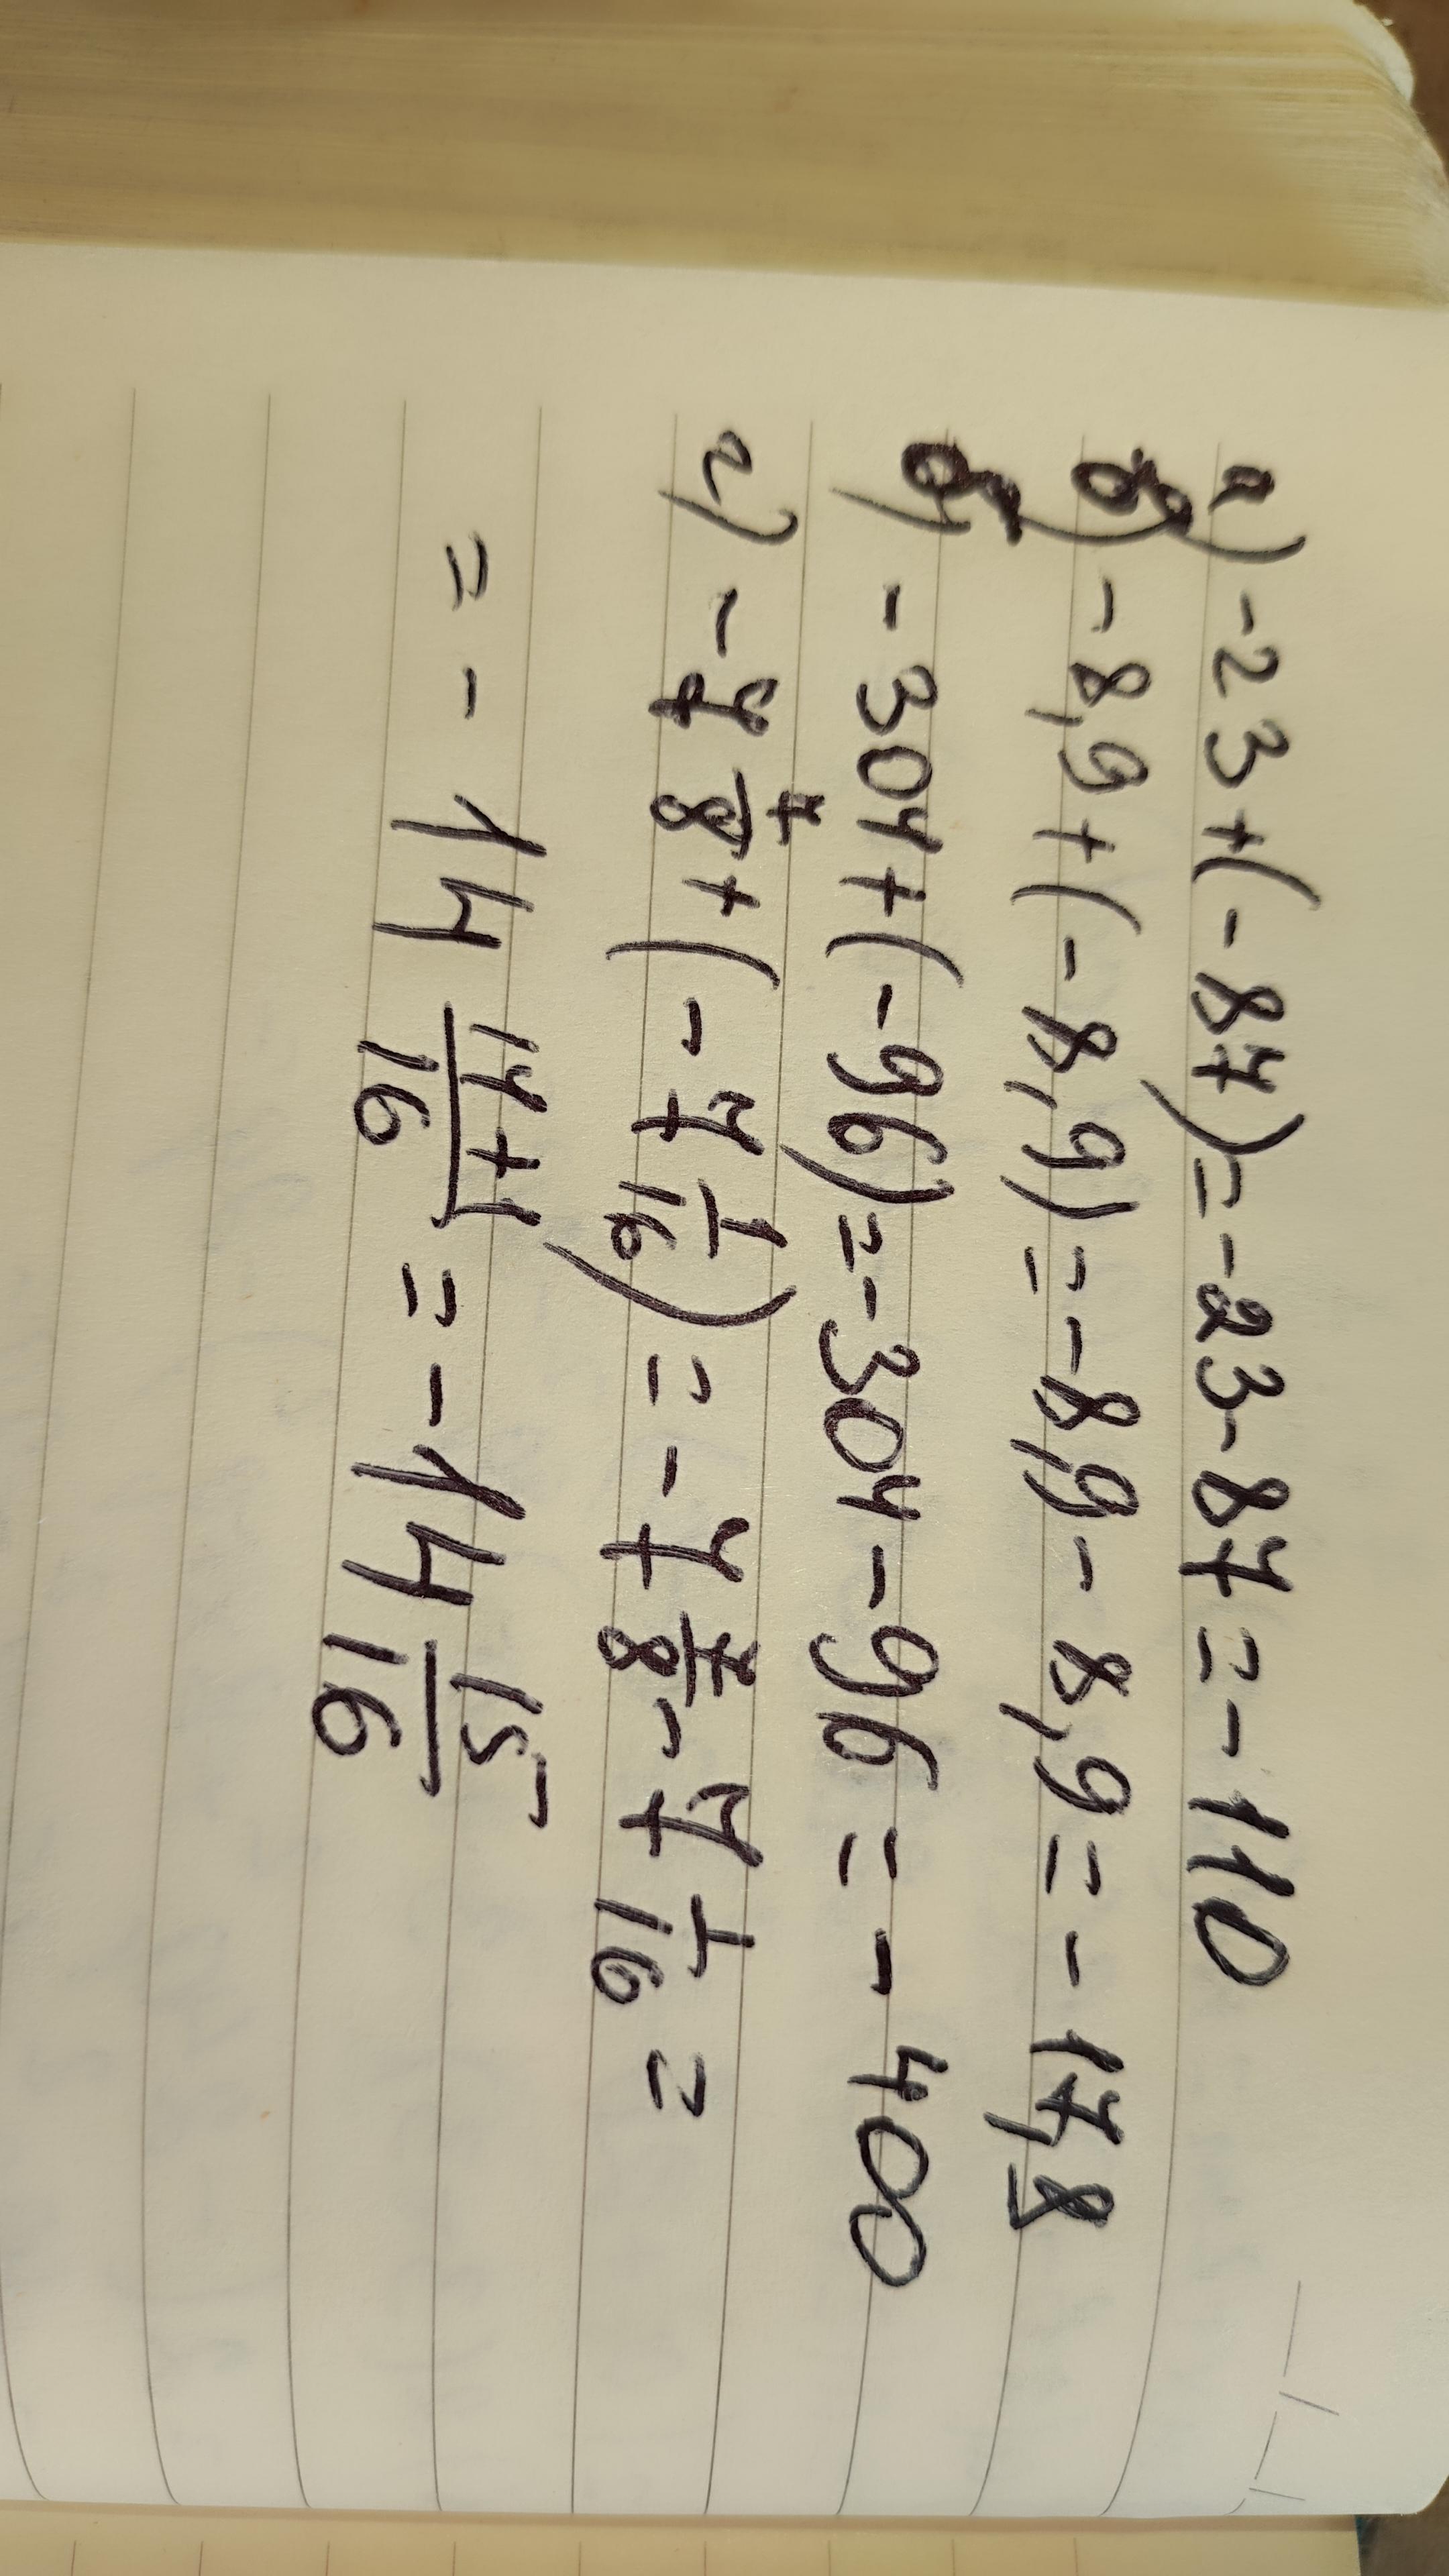 а) -23+(-87)=-23-87=-110
в) -8,9+(-8,9)=-8,9-8,9=-17,8
б) -304+(-96)=-304-96=-400
г) -7 7/8+(-7 1/16)=-7 7/8-7 1/16=
=-14 14+1/16=-14 15/16